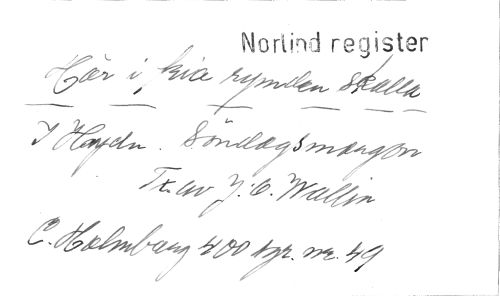 Norlind register
Hör i fria rymden skalla
J Haydn. Söndagsmorgon
Tx. av J. O. Wallin
C. Holmberg 400 sgr. nr. 49